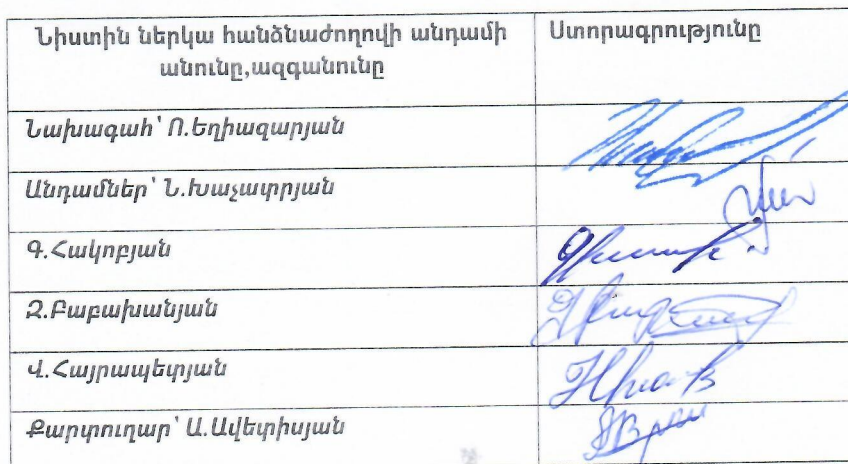 Նիստին ներկա հանձնաժողովի անդամի Ստորագրությունը
անունը,ազգանունը
Նախագահ՝ Ո.Եղիազարյան
Անդամներ՝ Ն.Խաչատրյան
Գ.Հակոբյան
Զ.Բաբախանյան
Վ.Հայրապետյան
Քարտուղար՝ Ա.Ավետիսյան